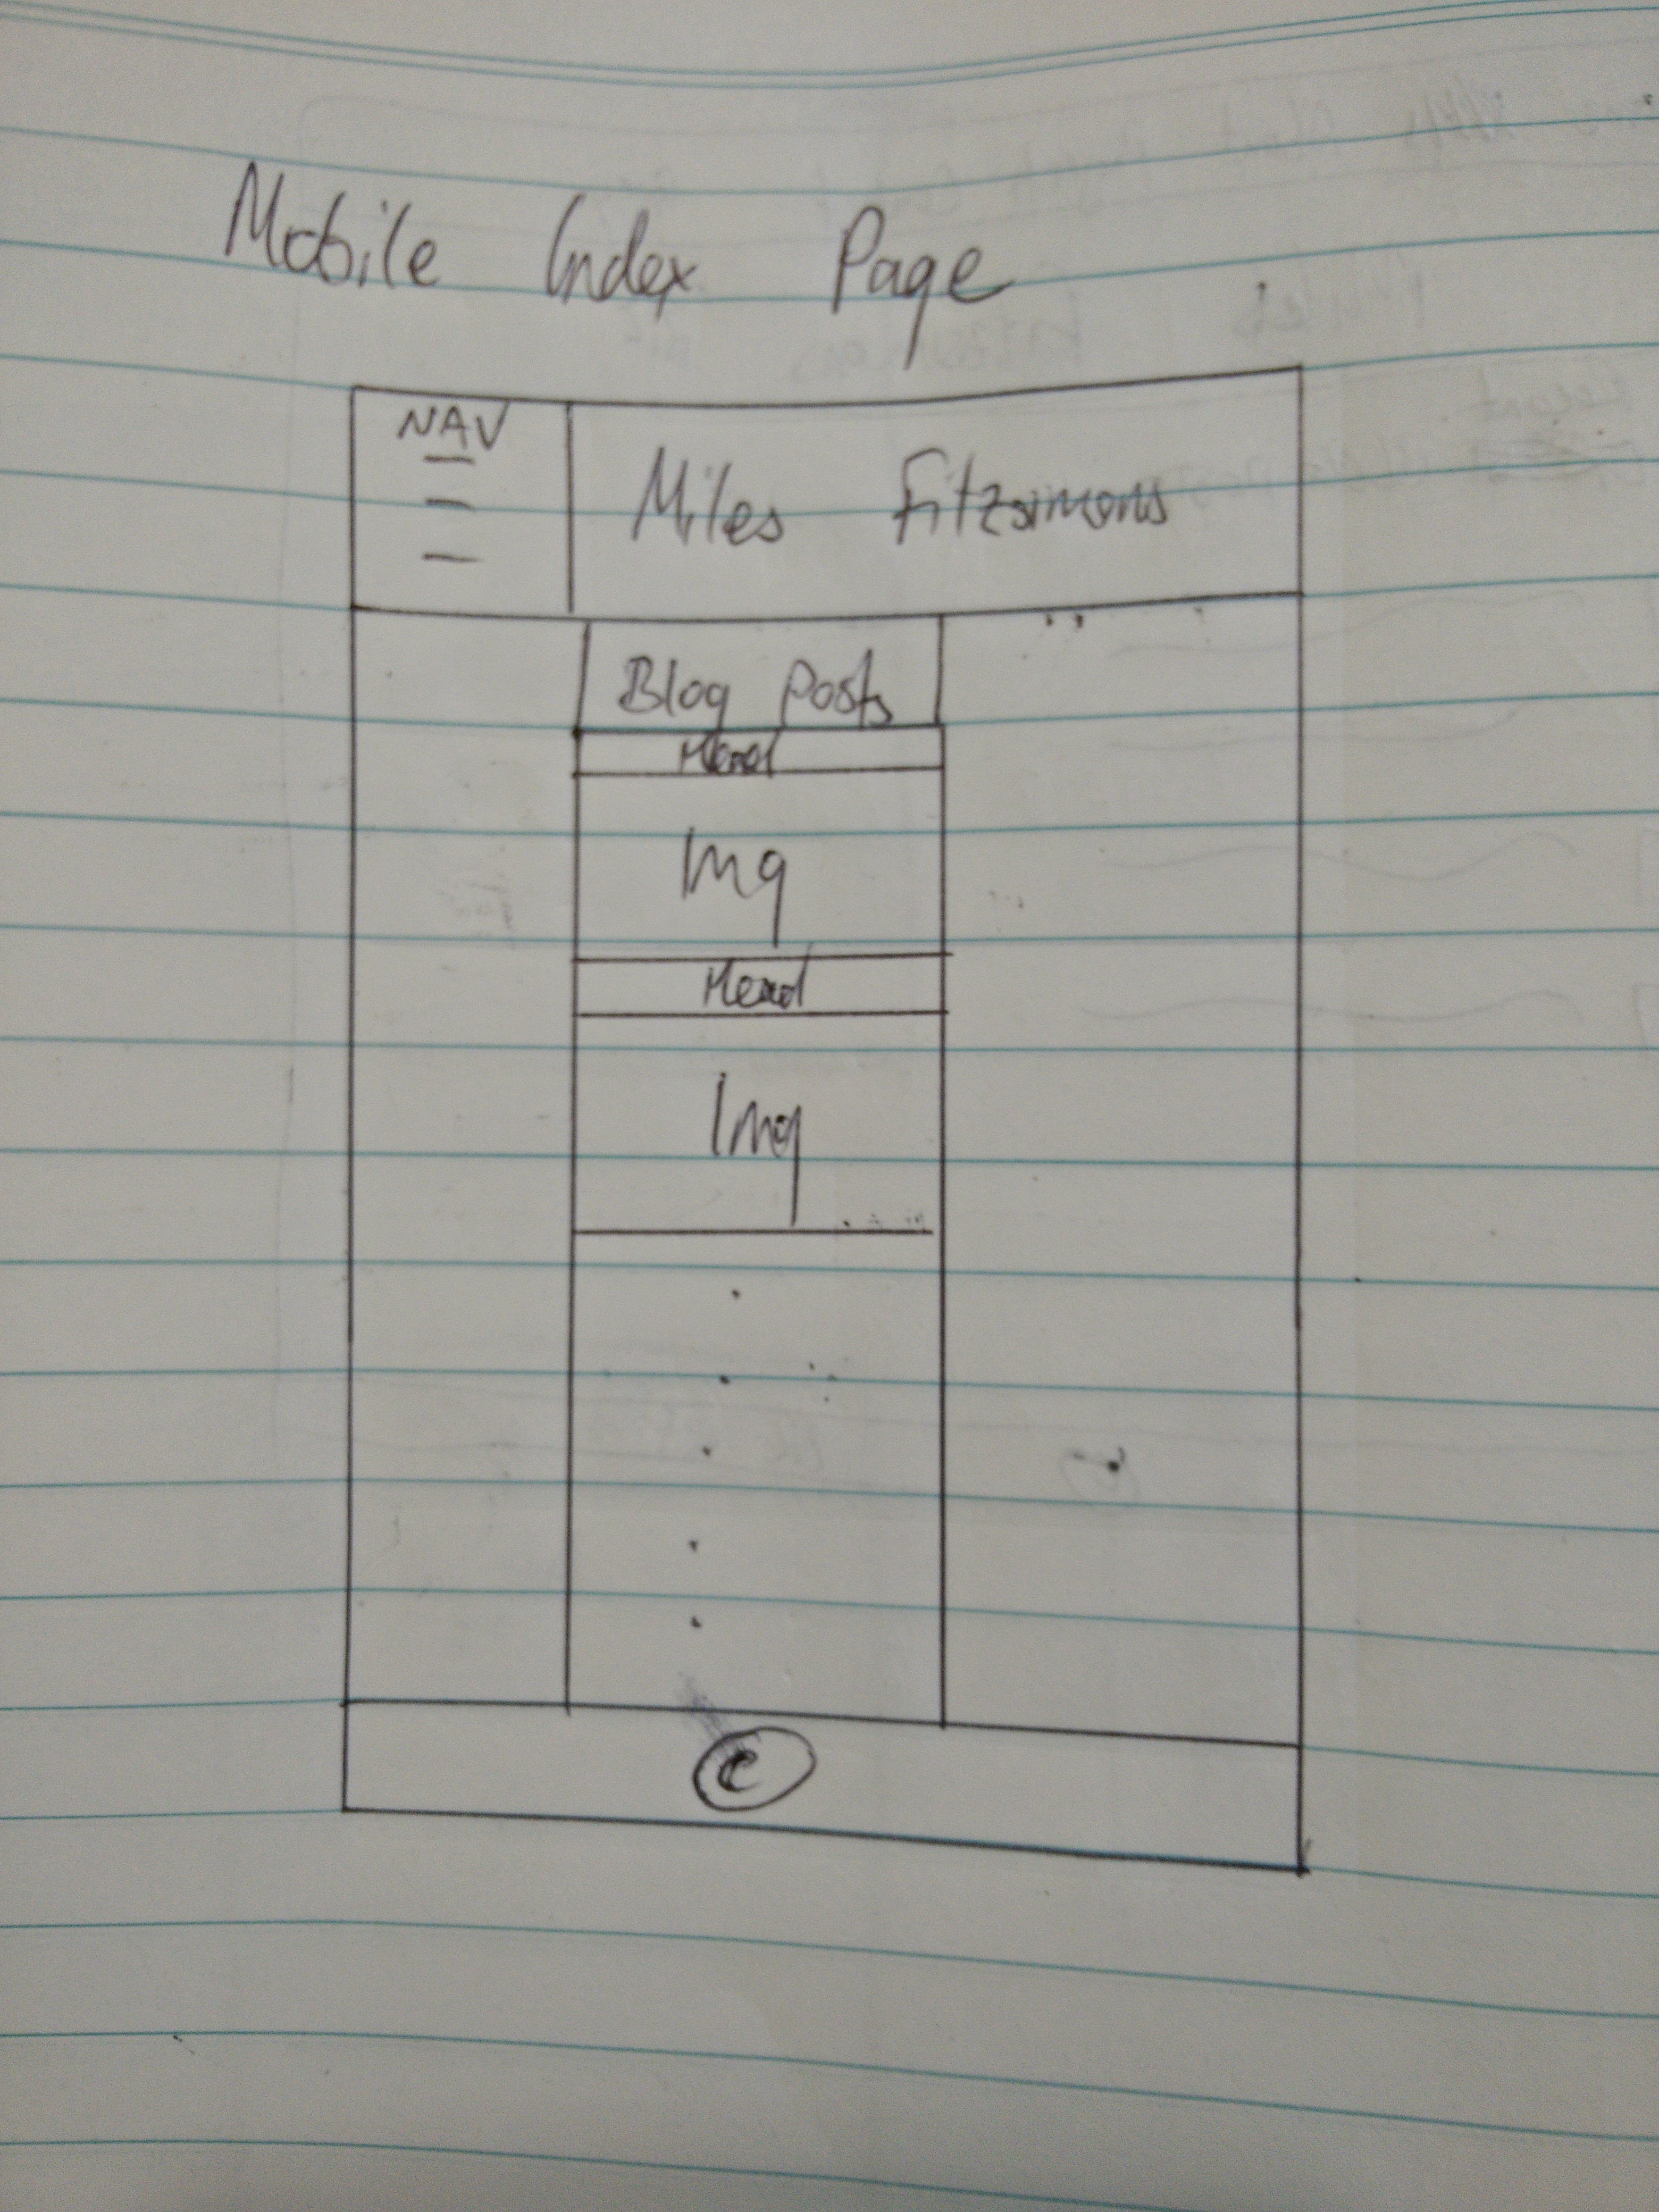 Mobile Index Page
NAV
Miles Fitzsimons
Blog Posts
Head
Img
Head
Img
©